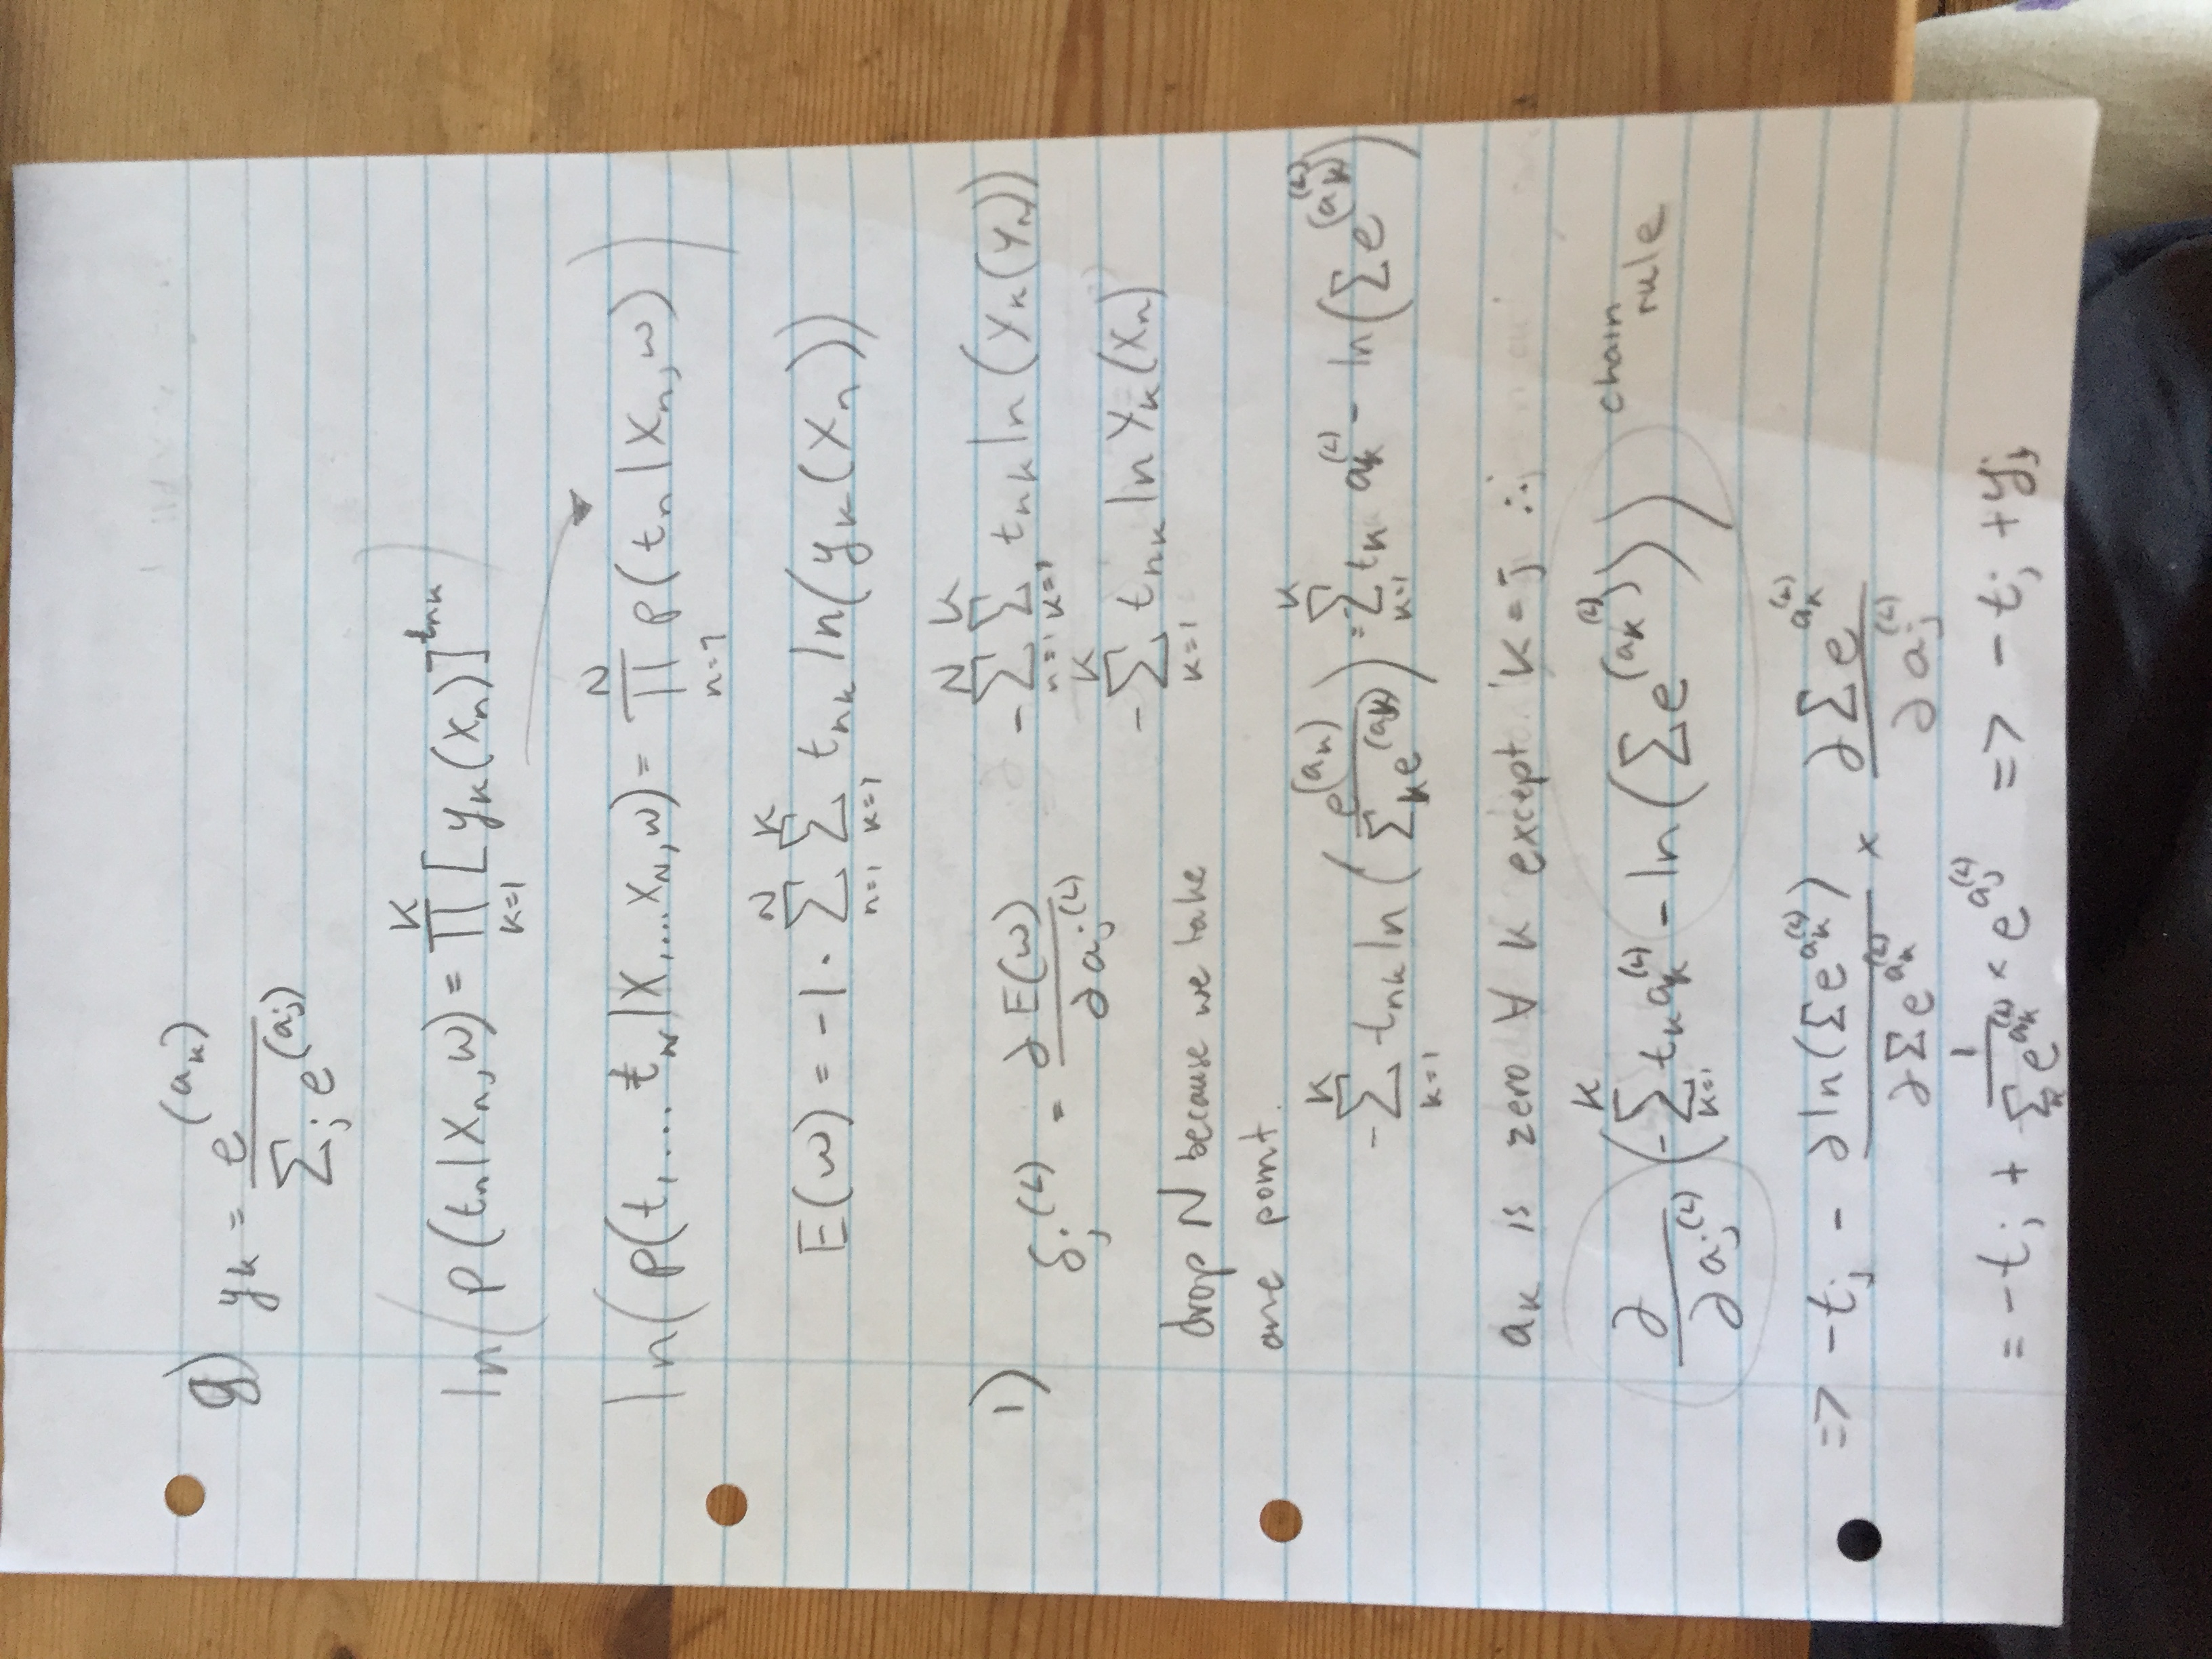 g) y_k = e^(a_k) / Σ_j e^(a_j)
ln( p(t_n|x_n, w) = ∏_{k=1}^{K} [y_k(x_n)]^{t_nk} )
ln( p(t_1 ... t_N | x_1 ... x_N, w) = ∏_{n=1}^{N} p(t_n | x_n, w) )
E(w) = -1 · Σ_{n=1}^{N} Σ_{k=1}^{K} t_nk ln(y_k(x_n))
1) δ_j^(L) = ∂E(w) / ∂a_j^(L)
- Σ_{n=1}^{N} Σ_{k=1}^{K} t_nk ln(y_k(y_n))
- Σ_{k=1}^{K} t_nk ln y_k(x_n)
drop N because we take
one point.
- Σ_{k=1}^{K} t_nk ln( e^(a_k) / Σ_k e^(a_k) ) = Σ_{k=1}^{K} t_k a_k^(L) - ln(Σ e^(a_k^(L)))
a_k is zero ∀ k except k = j ∴
∂/∂a_j^(L) ( - Σ_{k=1}^{K} t_k a_k^(L) - ln(Σ e^(a_k^(L))) ) chain
rule
=> -t_j - ∂ln(Σ e^{a_k^(L)}) / ∂Σ e^{a_k^(L)} × ∂Σ e^{a_k^(L)} / ∂a_j^(L)
= -t_j + 1 / Σ_k e^{a_k^(L)} × e^{a_j^(L)} => -t_j + y_j